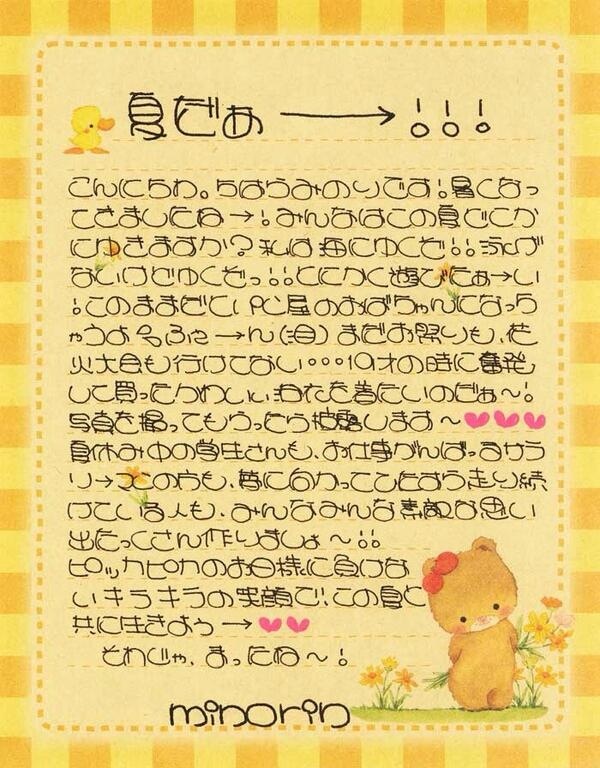 夏だぁ――→!!!
こんにちわ。ちはらみのりです!暑くなっ
てきましたね→!みんなはこの夏どこか
にゆきますか?私は海にゆくぞ!!泳げ
ないけどゆくぞっ!!とにかく遊びたぁ→い
!このままだとPC屋のおばちゃんになっち
ゃうよぅふぇ→ん(泪)まだお祭りも、花
火大会も行けてない・・・19才の時に奮発
して買ったかわいいゆかたを着たいのだぁ~!
写真を撮ってもらったら披露します~♥♥♥
夏休み中の学生さんも、お仕事がんばってるサラ
リ→マンの方も、夢に向かってひたすら走り続
けている人も、みんなみんな素敵な思い
出たっくさん作りましょ~!!
ピッカピカのお日様に負けな
いキラキラの笑顔で、この夏と
共に生きよう→♥♥
それじゃ、まったね~!
minorin